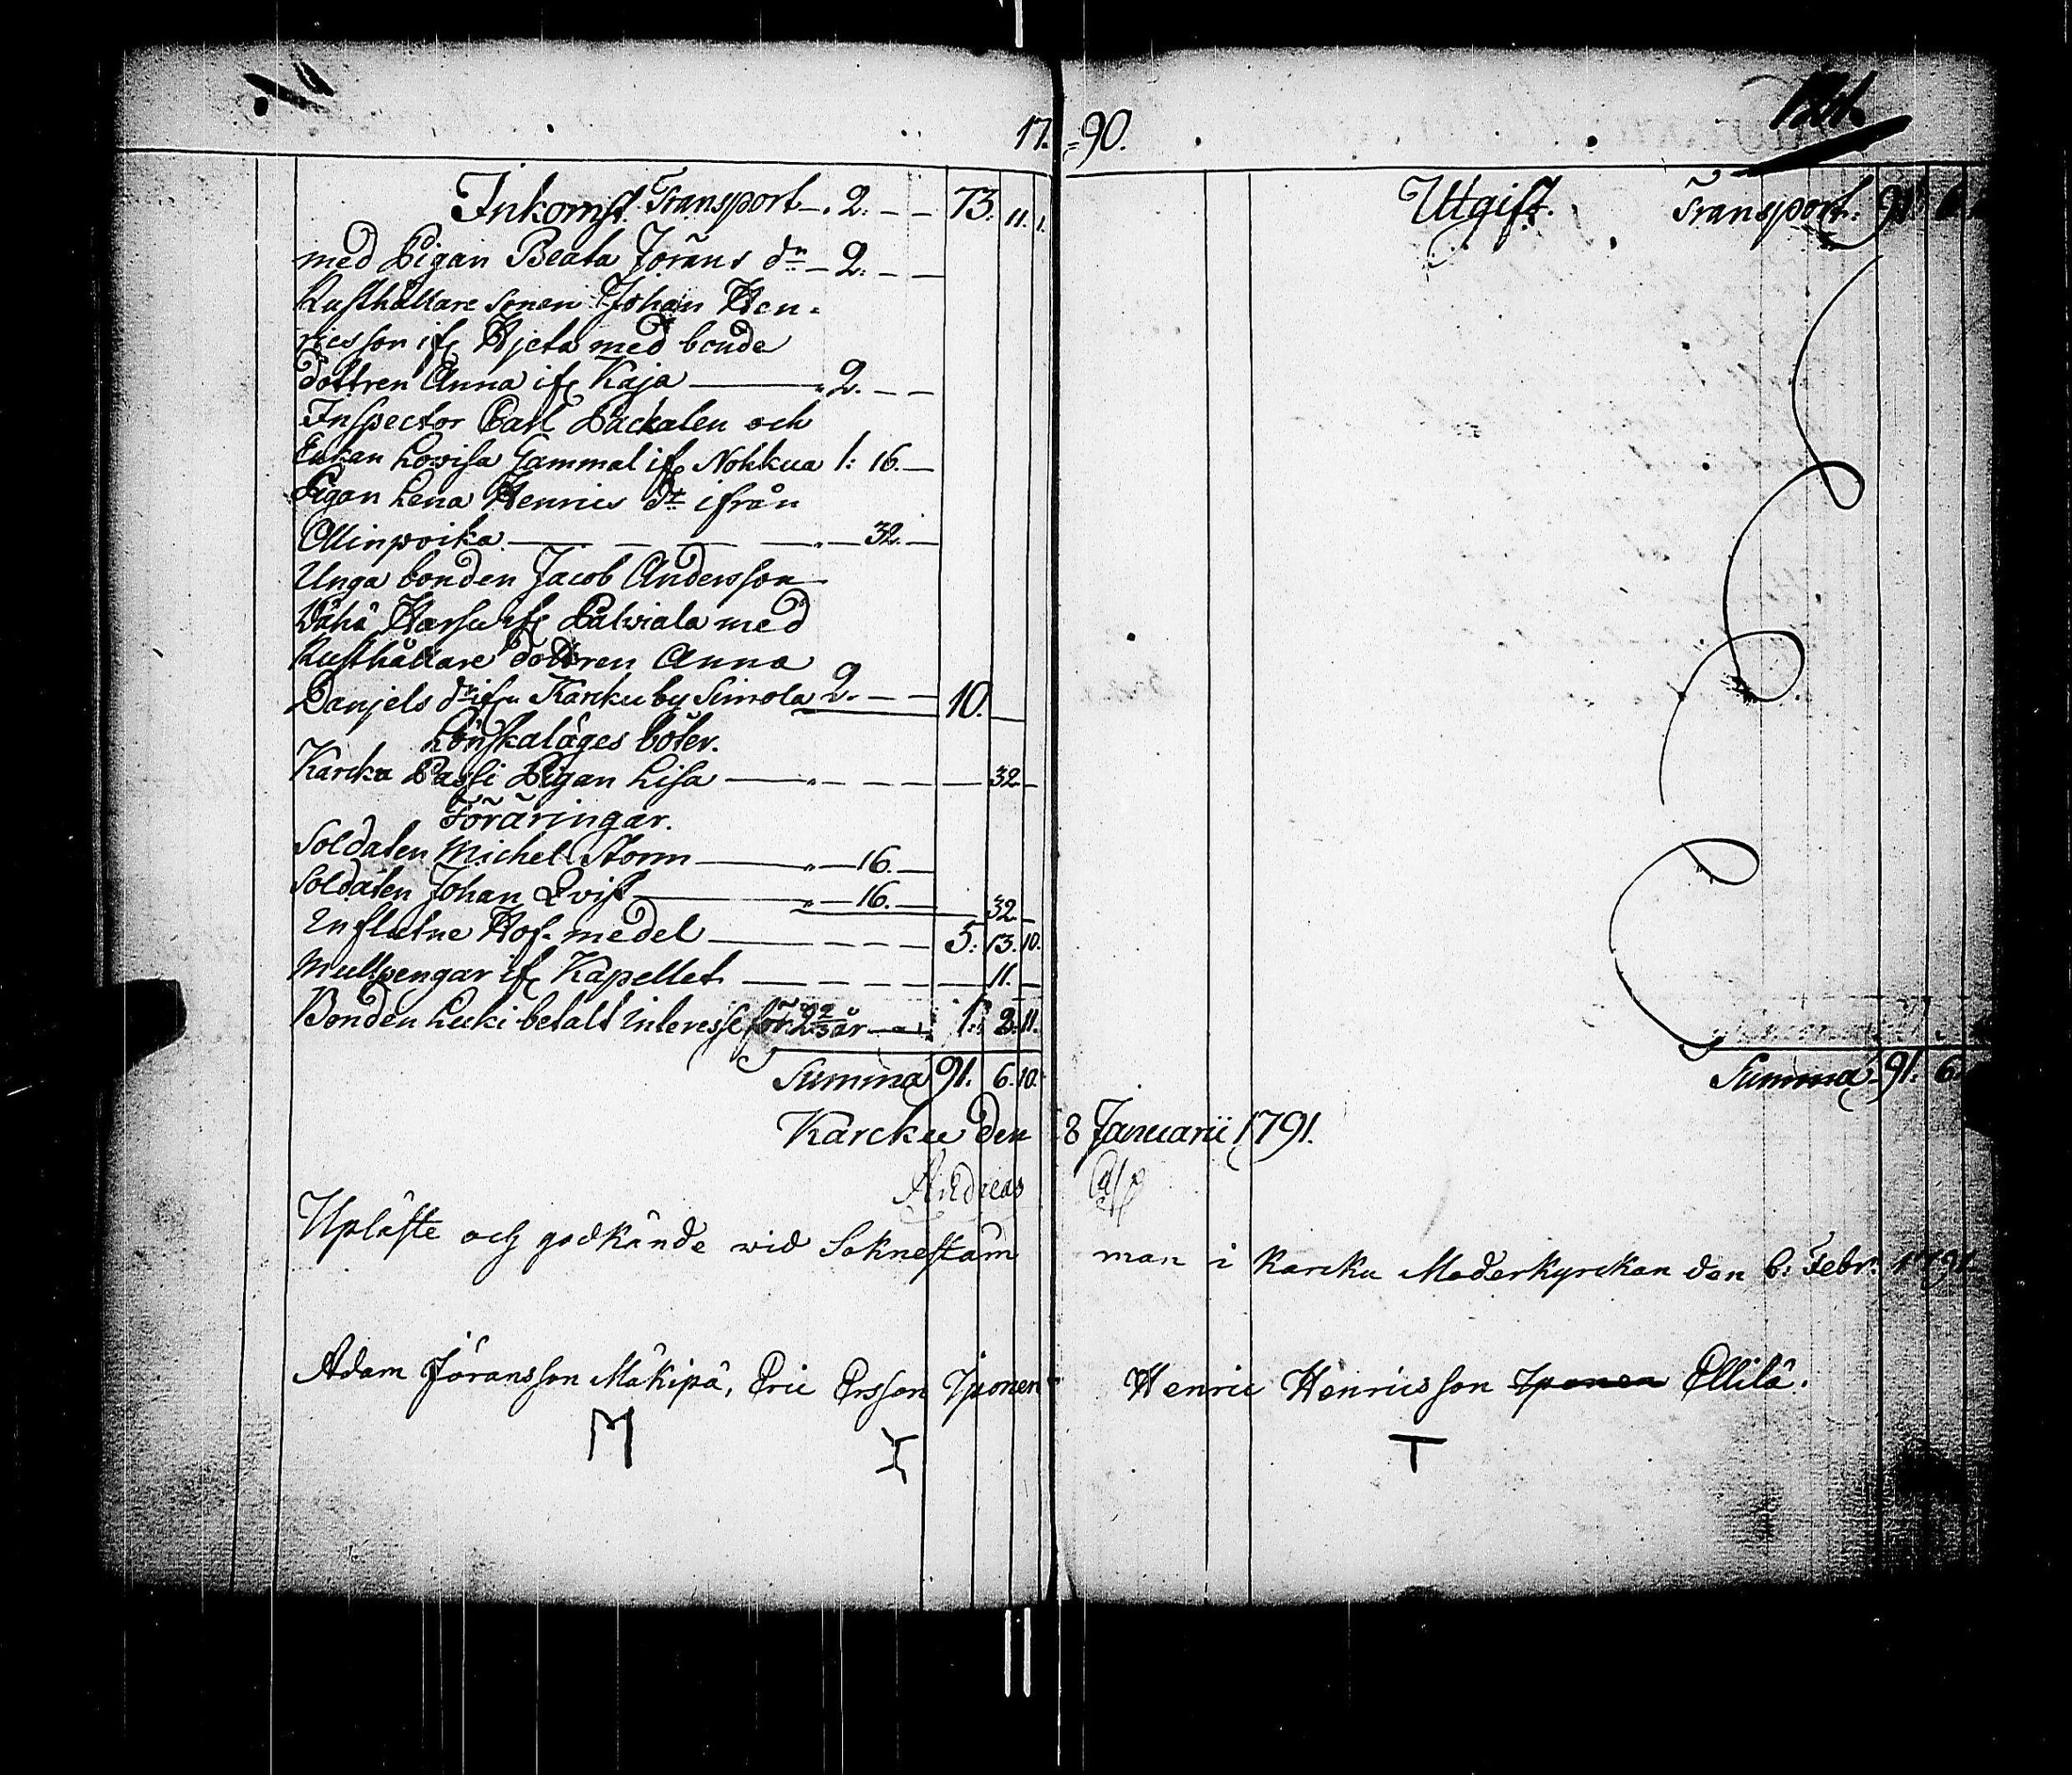 17. = 90.
Inkomst Transport — . 2. — — 73. 11. 1.
med Pigan Beata Jörans dr — 2. — —
Rusthållare sonen Johan Hen-
ricsson ifr Hjeta med bonde
dottren Anna ifr Kaja — 2. — —
Inspector Carl Packalen och
Enkan Lovisa Gammal ifr Nohkua 1: 16. —
Pigan Lena Henrics dr ifrån
Ollinpoika — — — — 32. —
Unga bonden Jacob Andersson
Wähä Harsu ifr Palviala med
Rusthållare dottren Anna
Danjels dr ifr Karcku by Simola 2. — — 10. —
Lönskaläges böter.
Karcku Pasli Pigan Lisa — — — — 32 —
Föräringar.
Soldaten Michel Storm — — 16. —
Soldaten Johan Qvist — — 16. — 32. —
Influtne Hof. medel — — — — 5: 13. 10.
Mullpengar ifr Kapellet — — — — 11. —
Bonden Luki betalt interesse för 2 2/3 år — 1: 2. 11.
Summa 91. 6. 10.
Utgift. Transport. 91 6
Summa 91. 6.
Karcku den 8 Januarii 1791.
Andreas
Upläste och godkände wid Soknestäm man i Karcku Moderkyrckan den 6. Febr. 1791
Adam Jöransson Mäkipä, Eric Ersson Iponen Henric Henricsson Iponen Ellilä.
M I T